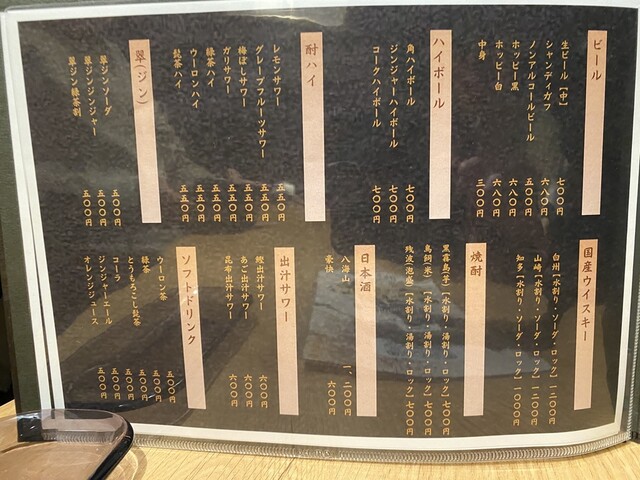 ビール
生ビール【中】 七〇〇円
シャンディガフ 六八〇円
ノンアルコールビール 五〇〇円
ホッピー黒 六八〇円
ホッピー白 六八〇円
中身 三〇〇円
ハイボール
角ハイボール 七〇〇円
ジンジャーハイボール 七〇〇円
コークハイボール 七〇〇円
酎ハイ
レモンサワー 五五〇円
グレープフルーツサワー 五五〇円
梅ぼしサワー 五五〇円
ガリサワー 五五〇円
緑茶ハイ 五五〇円
ウーロンハイ 五五〇円
髭茶ハイ 五五〇円
翠(ジン)
翠ジンソーダ 五〇〇円
翠ジンジンジャー 五〇〇円
翠ジン緑茶割 五〇〇円
国産ウイスキー
白州【水割り・ソーダ・ロック】一二〇〇円
山崎【水割り・ソーダ・ロック】一二〇〇円
知多【水割り・ソーダ・ロック】一〇〇〇円
焼酎
黒霧島(芋)【水割り・湯割り・ロック】七〇〇円
鳥飼(米)【水割り・湯割り・ロック】七〇〇円
残波(泡盛)【水割り・湯割り・ロック】七〇〇円
日本酒
八海山 一、二〇〇円
豪快 六〇〇円
出汁サワー
鰹出汁サワー 六〇〇円
あご出汁サワー 六〇〇円
昆布出汁サワー 六〇〇円
ソフトドリンク
ウーロン茶 五〇〇円
緑茶 五〇〇円
とうもろこし髭茶 五〇〇円
コーラ 五〇〇円
ジンジャーエール 五〇〇円
オレンジジュース 五〇〇円